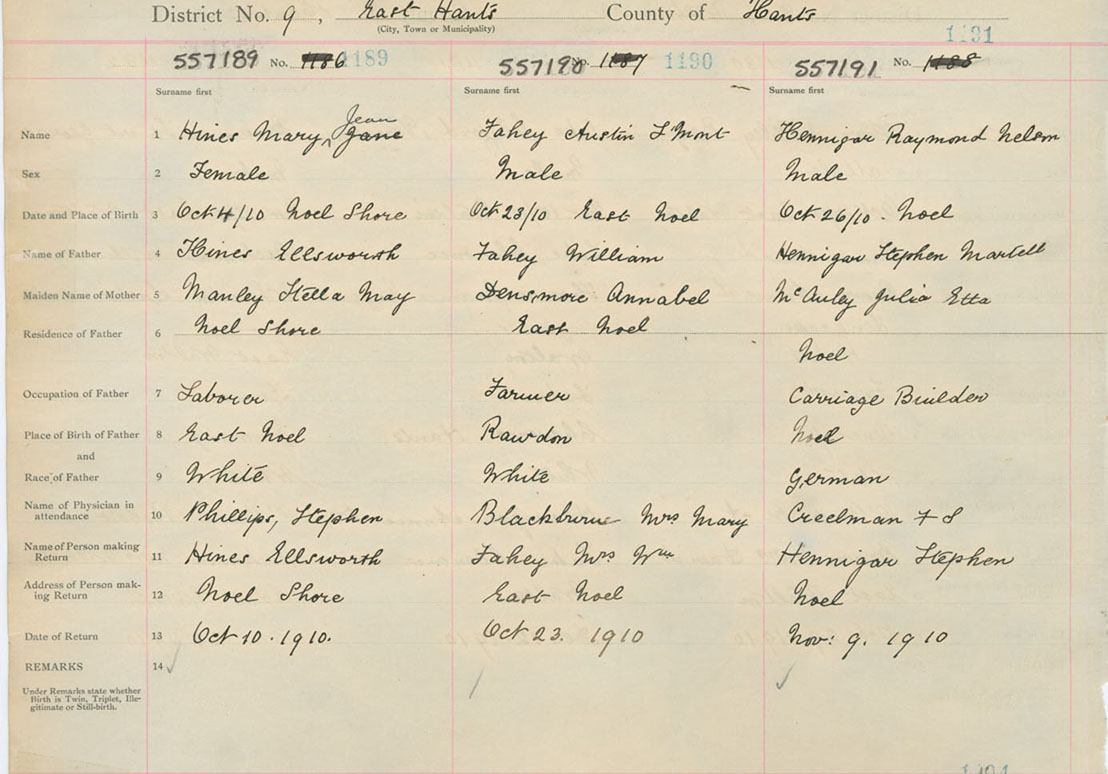 District No. 9, East Hants County of Hants
(City, Town or Municipality)
1191
557189 No. 1186 1189 557190 No. 1187 1190 557191 No. 1188
Surname first Surname first Surname first
Jean
Name 1 Hines Mary, Jane Fahey Austin L'Mont Hennigar Raymond Nelson
Sex 2 Female Male Male
Date and Place of Birth 3 Oct 4/10 Noel Shore Oct 23/10 East Noel Oct 26/10 - Noel
Name of Father 4 Hines Ellsworth Fahey William Hennigar Stephen Martell
Maiden Name of Mother 5 Manley Stella May Densmore Annabel McAuley Julia Etta
Residence of Father 6 Noel Shore East Noel Noel
Occupation of Father 7 Laborer Farmer Carriage Builder
Place of Birth of Father 8 East Noel Rawdon Noel
and
Race of Father 9 White White German
Name of Physician in
attendance 10 Phillips, Stephen Blackburne Mrs Mary Creelman F S
Name of Person making
Return 11 Hines Ellsworth Fahey Mrs Wm Hennigar Stephen
Address of Person mak-
ing Return 12 Noel Shore East Noel Noel
Date of Return 13 Oct 10 - 1910. Oct 23. 1910 Nov: 9. 1910
REMARKS 14
Under Remarks state whether
Birth is Twin, Triplet, Ille-
gitimate or Still-birth.